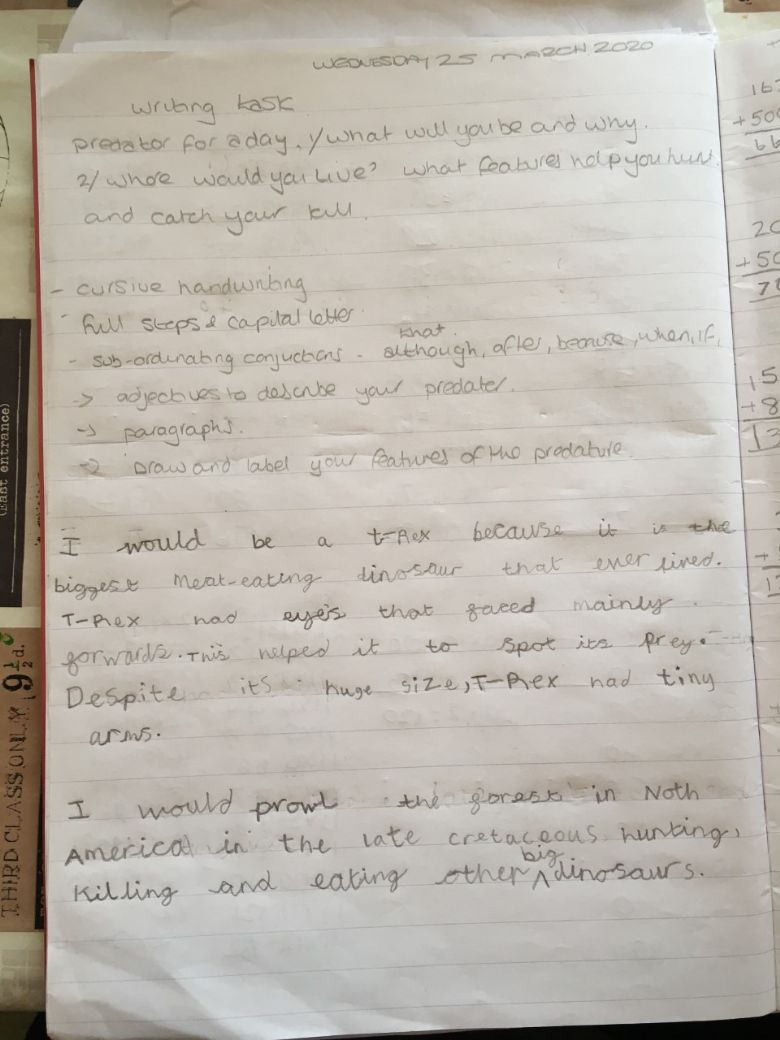 WEDNESDAY 25 MARCH 2020
writing task
predator for a day. 1/ what will you be and why.
2/ whore would you live? what features help you hunt
and catch your kill.
- cursive handwriting
- full stops & capital letter
that.
- sub-ordinating conjuctions - although, after, because, when, if,
-> adjectives to describe your predater.
-> paragraphs.
-> Draw and label your features of the predature.
I would be a t-Rex because it is the
biggest meat-eating dinosaur that ever lived.
T-Rex had eyes that faced mainly
forwards. This helped it to spot its prey.
Despite its huge size, T-Rex had tiny
arms.
I would prowl the forest in Noth
America in the late cretaceous hunting,
big
killing and eating other ^ dinosaurs.
167
+500
66
20
+50
70
15
+8
12
+
1
(East entrance)
THIRD CLASS ONLY 9 1/2 d.